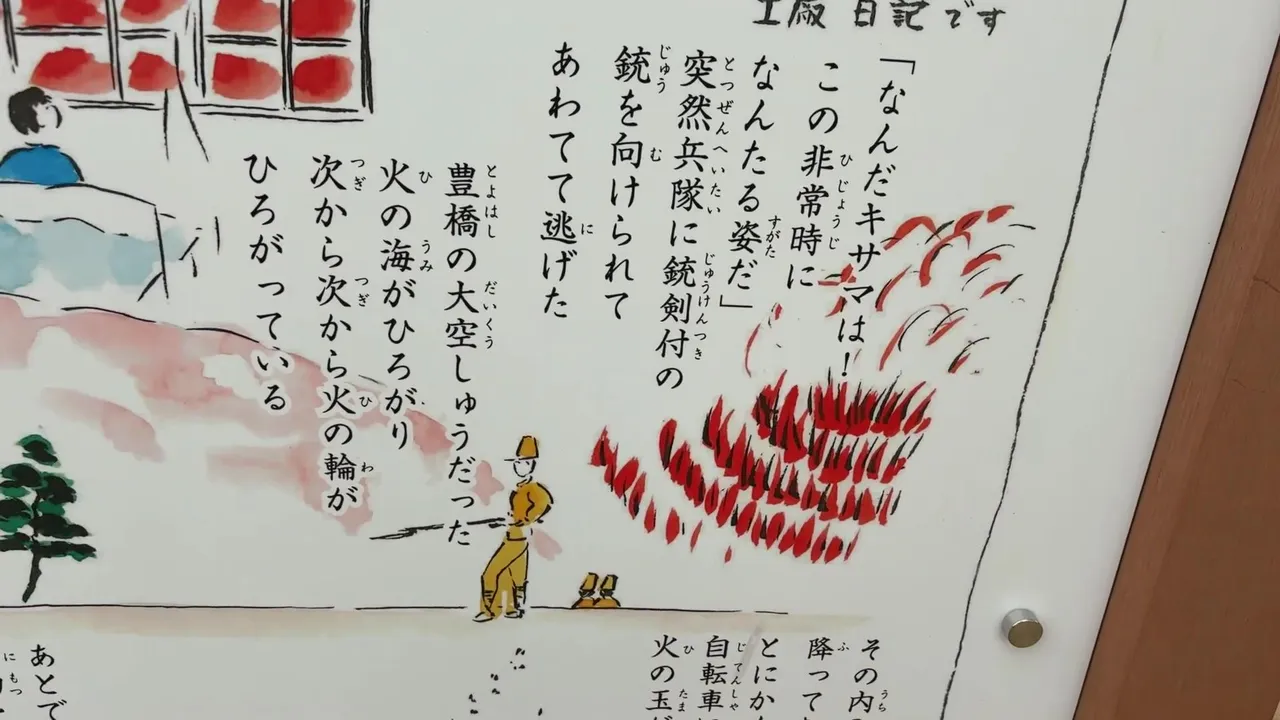 工廠日記です
「なんだキサマは!
この非常時に
なんたる姿だ」
突然兵隊に銃剣付の
銃を向けられて
あわてて逃げた
豊橋の大空しゅうだった
火の海がひろがり
次から次から火の輪が
ひろがっている
その内
降って
とにか
自転車に
火の玉が
あとで